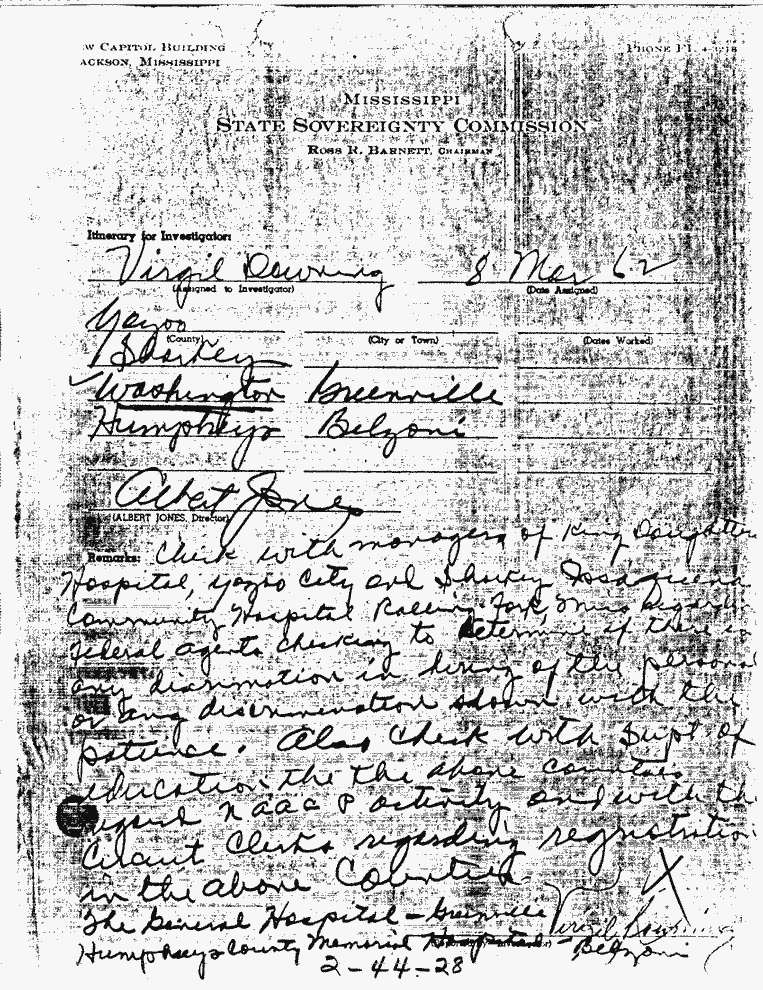 W CAPITOL BUILDING
ACKSON, MISSISSIPPI
PHONE FL 4-
MISSISSIPPI
STATE SOVEREIGNTY COMMISSION
ROSS R. BARNETT, CHAIRMAN
Itinerary for Investigator:
Virgil Downing 8 Mar 62
(Assigned to Investigator) (Date Assigned)
Yazoo
(County) (City or Town) (Dates Worked)
Sharkey
Washington Greenville
Humphreys Belzoni
Albert Jones
(ALBERT JONES, Director)
Remarks: Check with managers of King Daughters
Hospital, Yazoo City and Sharkey Issaquena
Community Hospital Rolling Fork, Miss regardin
federal agents checking to determine if there is
any discrimation in hiring of the personal
or any discrimination shown with the
patience. Also check with Supt. of
education the the above counties
regard NAACP activity and with th
Circuit Clerks regarding registration
in the above Counties
The General Hospital - Greenville
Virgil Downing
Humphreys County Memorial Hospital - Belzoni
2-44-28